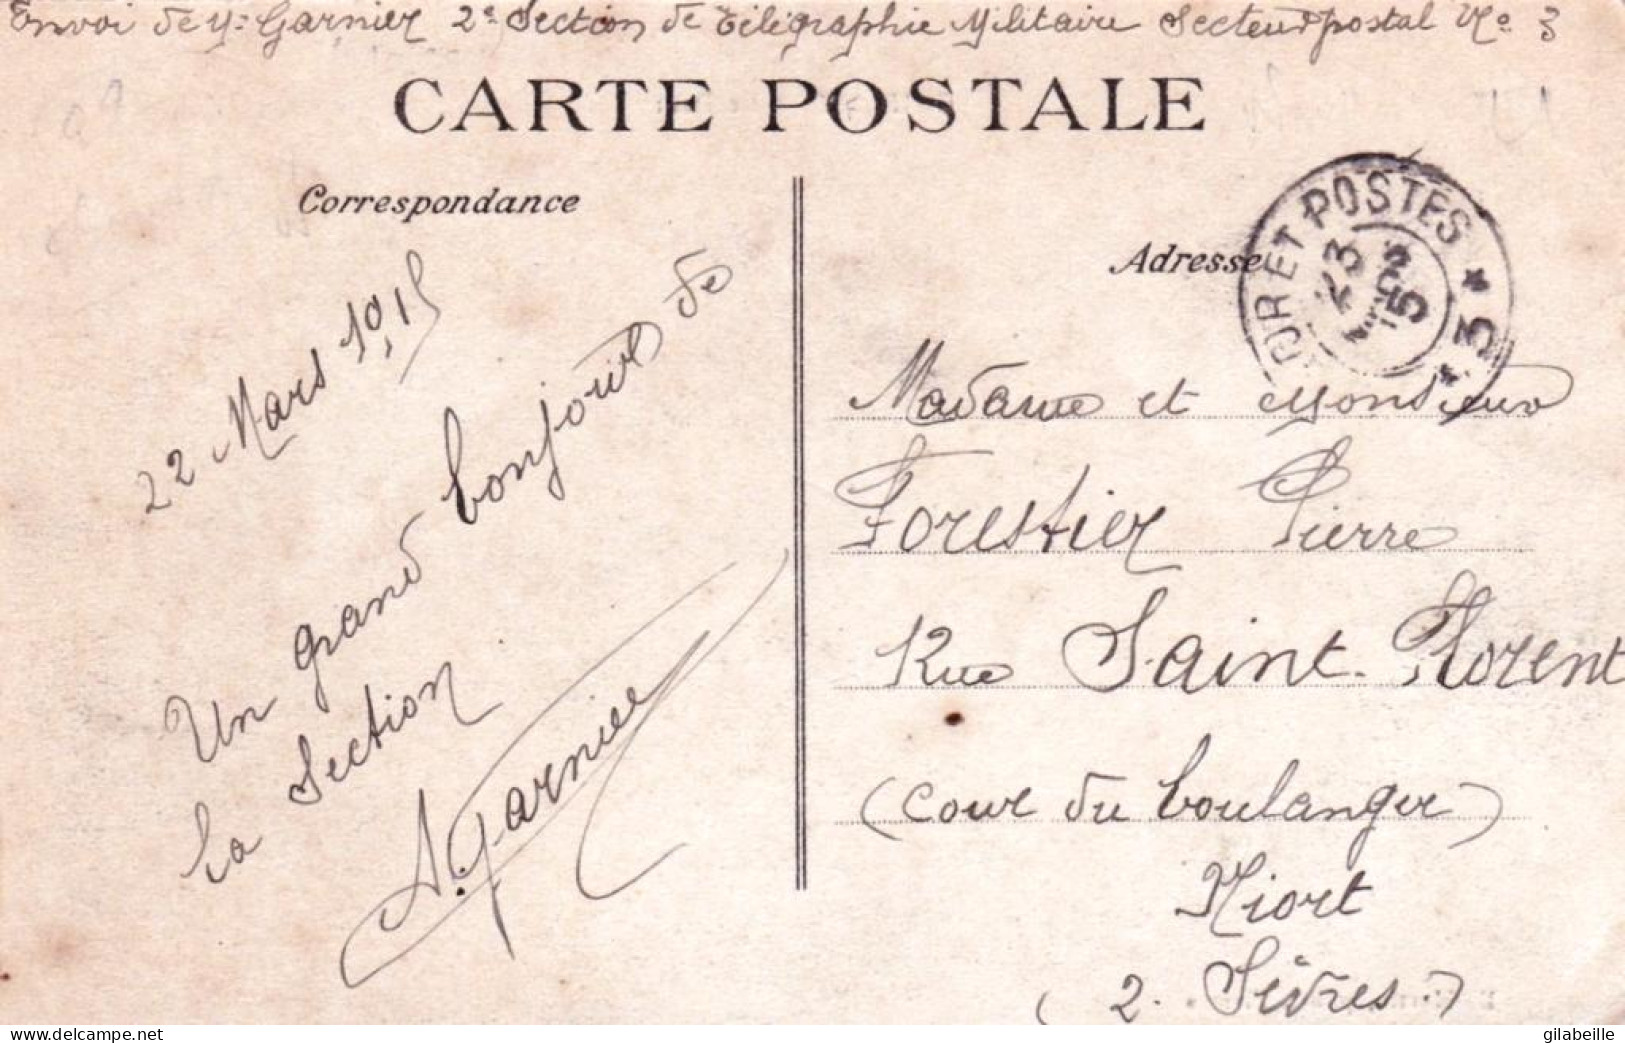 Envoi de Mr Garnier 2e Section de Télégraphie Militaire Secteur postal No 3
CARTE POSTALE
Correspondance
22 Mars 1915
Un grand bonjour de
la Section
A. Garnier
Adresse
OR ET POSTES * 3 *
23
MARS
15
Madame et Monsieur
Forestier Pierre
Rue Saint-Florent
(cour du boulanger)
Niort
(2. Sèvres)
gilabeille